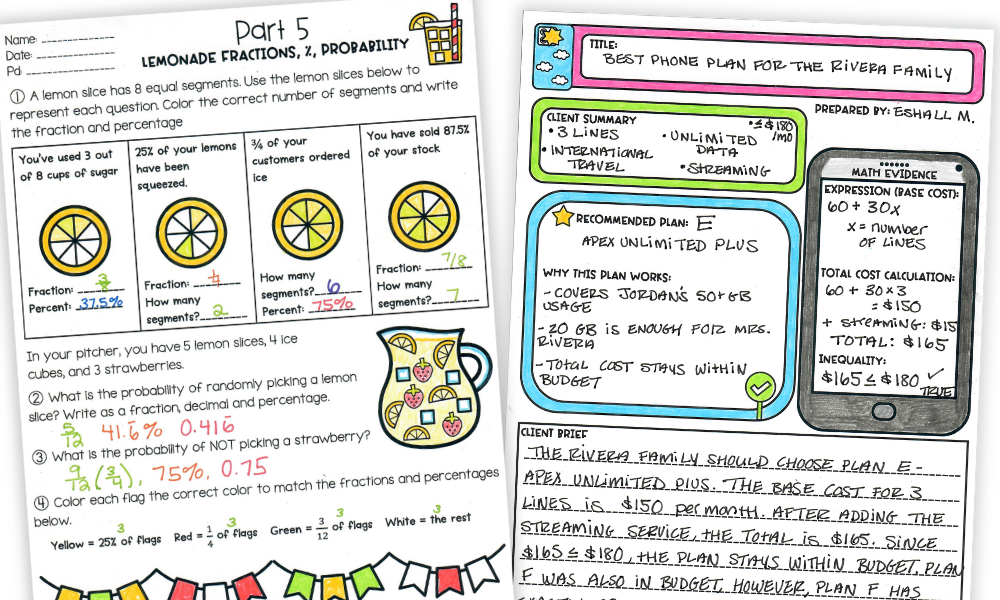 Name:
Date:
Pd
Part 5
LEMONADE FRACTIONS, %, PROBABILITY
① A lemon slice has 8 equal segments. Use the lemon slices below to
represent each question. Color the correct number of segments and write
the fraction and percentage
You've used 3 out
of 8 cups of sugar
Fraction: 3/8
Percent: 37.5%
25% of your lemons
have been
squeezed.
Fraction: 1/4
How many
segments? 2
¾ of your
customers ordered
ice
How many
segments? 6
Percent: 75%
You have sold 87.5%
of your stock
Fraction: 7/8
How many
segments? 7
In your pitcher, you have 5 lemon slices, 4 ice
cubes, and 3 strawberries.
② What is the probability of randomly picking a lemon
slice? Write as a fraction, decimal and percentage.
5/12 41.6̄% 0.416̄
③ What is the probability of NOT picking a strawberry?
9/12 (3/4), 75%, 0.75
④ Color each flag the correct color to match the fractions and percentages
below.
3 3 3 3
Yellow = 25% of flags Red = 1/4 of flags Green = 3/12 of flags White = the rest
TITLE:
BEST PHONE PLAN FOR THE RIVERA FAMILY
PREPARED BY: ESHALL M.
CLIENT SUMMARY
• 3 LINES
• INTERNATIONAL
TRAVEL
• ≤ $180
/MO
• UNLIMITED
DATA
• STREAMING
RECOMMENDED PLAN: E
APEX UNLIMITED PLUS
WHY THIS PLAN WORKS:
- COVERS JORDAN'S 50+ GB
USAGE
- 20 GB IS ENOUGH FOR MRS.
RIVERA
- TOTAL COST STAYS WITHIN
BUDGET
MATH EVIDENCE
EXPRESSION (BASE COST):
60 + 30x
x = number
OF LINES
TOTAL COST CALCULATION:
60 + 30 × 3
= $150
+ STREAMING: $15
TOTAL: $165
INEQUALITY:
$165 ≤ $180 ✓
TRUE
CLIENT BRIEF
THE RIVERA FAMILY SHOULD CHOOSE PLAN E -
APEX UNLIMITED PLUS. THE BASE COST FOR 3
LINES IS $150 per month. AFTER ADDING THE
STREAMING SERVICE, THE TOTAL IS $165. SINCE
$165 ≤ $180, THE PLAN STAYS WITHIN BUDGET. PLAN
F WAS ALSO IN BUDGET, HOWEVER, PLAN F HAS